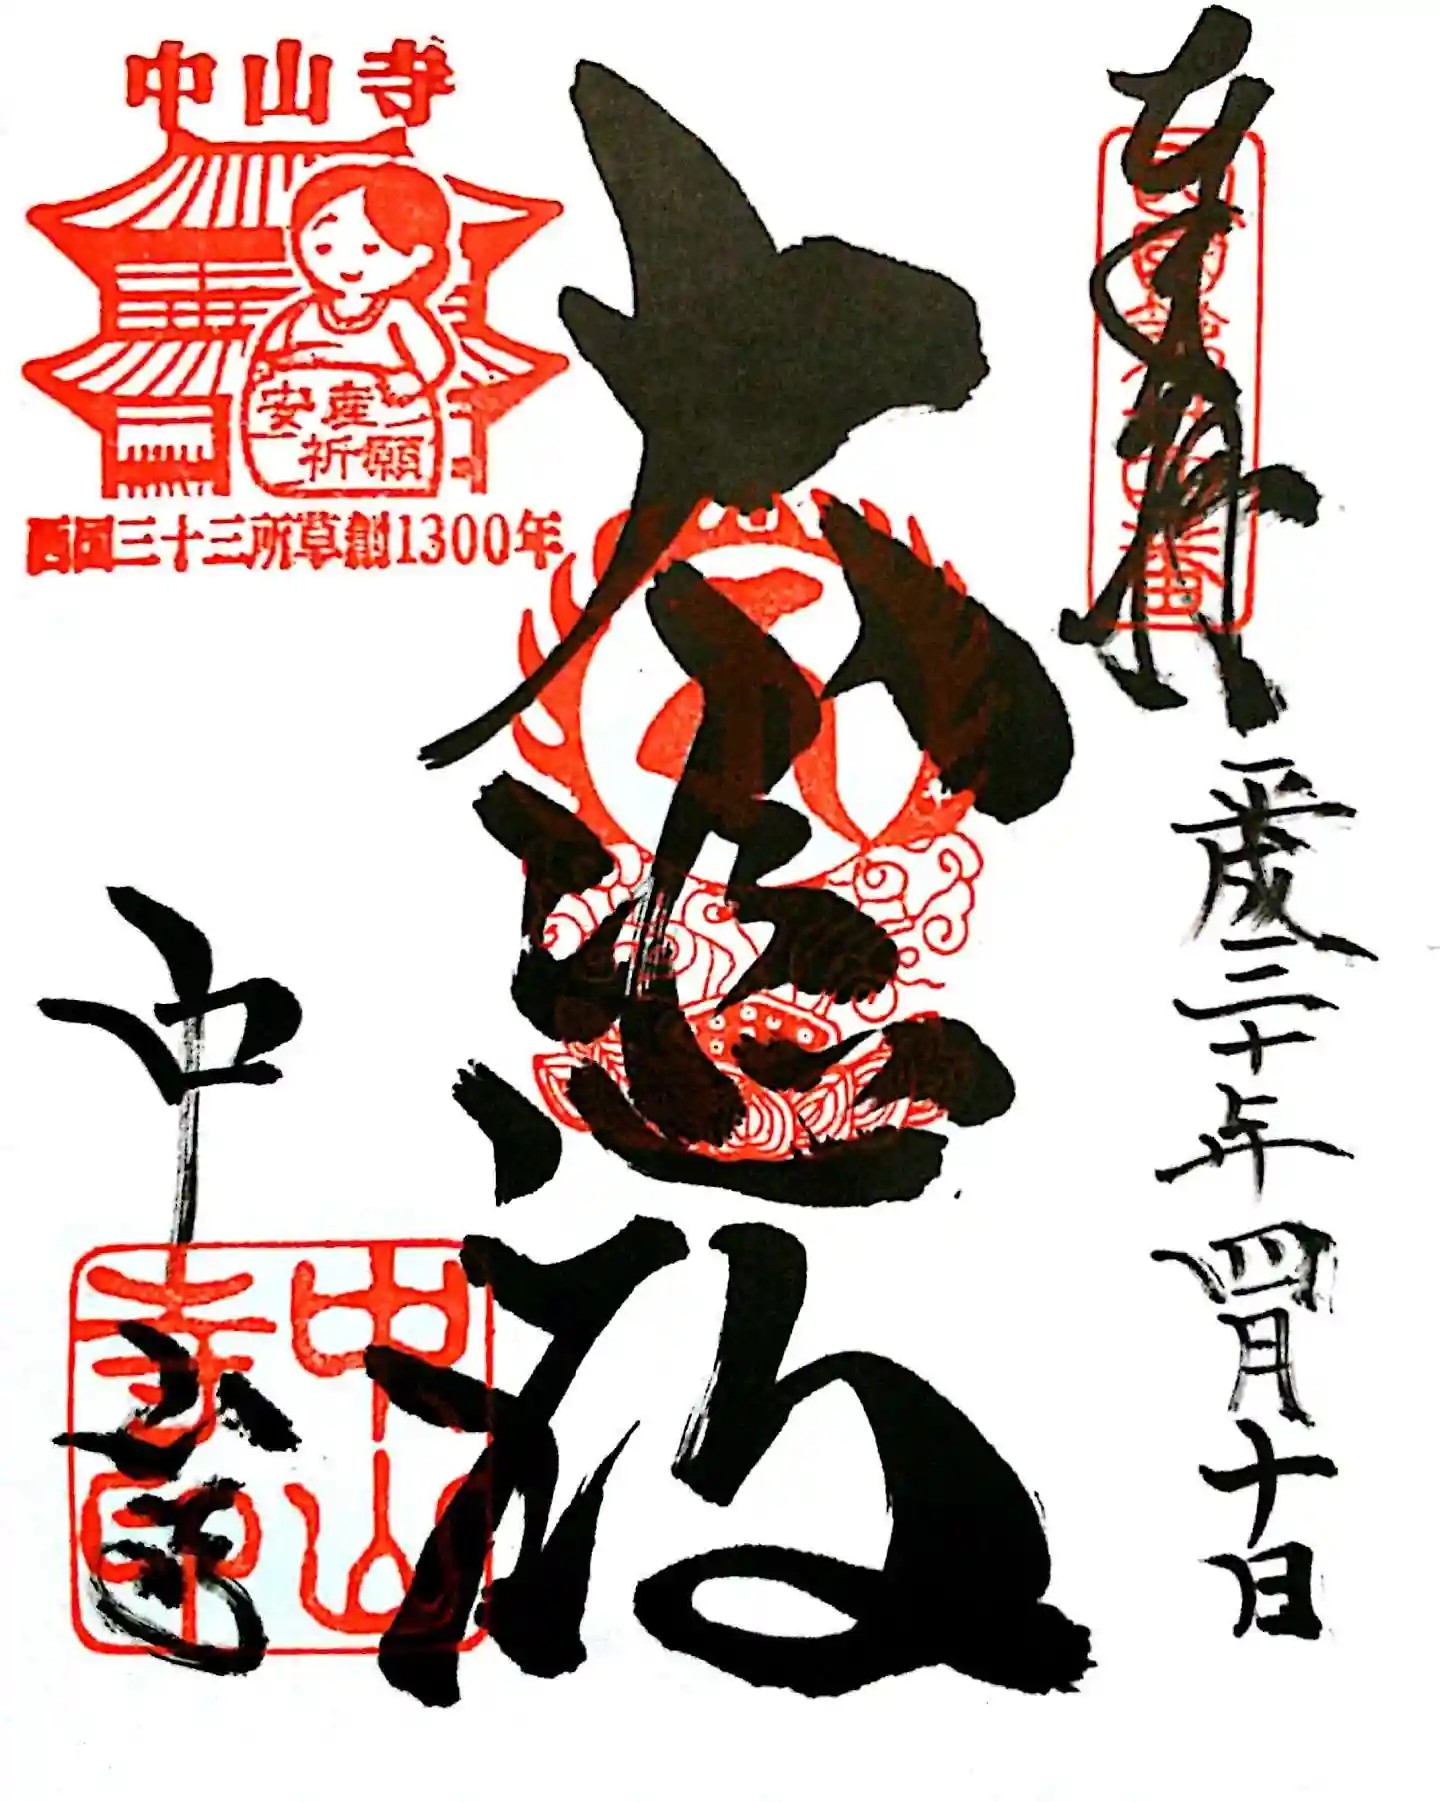 奉拝
平成三十年四月十日
大悲殿
中山寺
中山寺
安産
祈願
西国三十三所草創1300年
中山
寺印